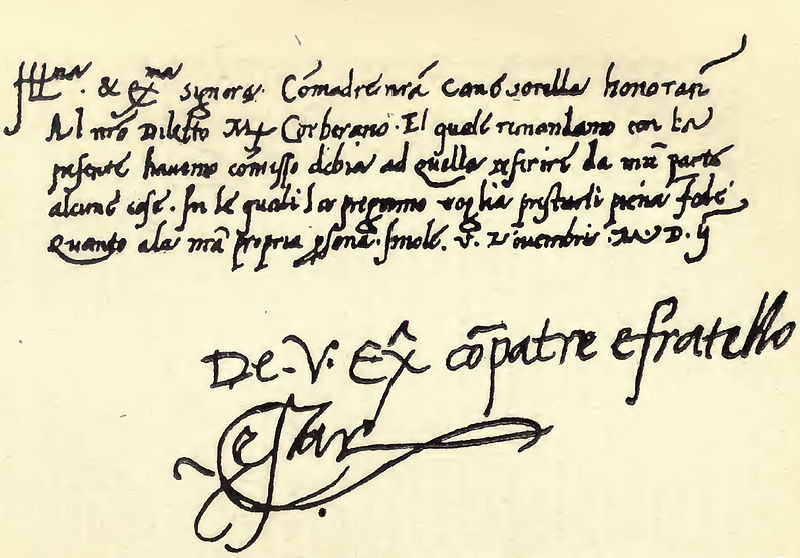 Illma. & Exma Signora. Cōmadre nr̄a came sorella honoran̄
Al nr̄o Diletto Mr Corberano. El quale rimandamo con la
presente havemo cōmisso debia ad quella referire da nr̄a parte
alcune cose. In le quali la pregamo voglia prestarli piena fede
Quanto a la nr̄a propria p̄sona. Imole. v. Novembris. M. D. ij
De. V. Exa cōpatre e fratello
Cesar